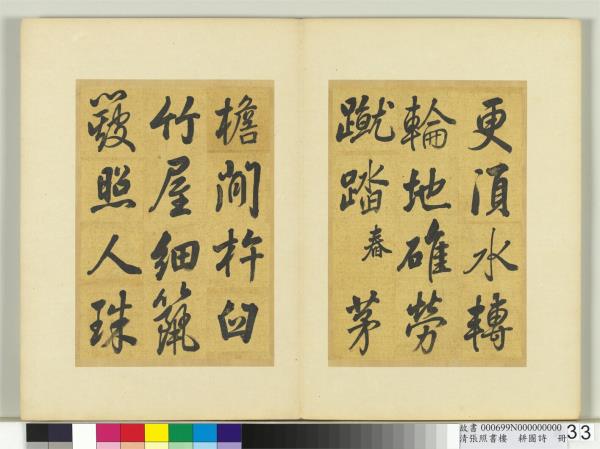 更湏水轉
輪地碓勞
蹴踏
舂
茅
檐閒杵臼
竹屋細篩
簸照人珠
故書 000699N000000000
清張照書樓 耕圖詩 冊
33